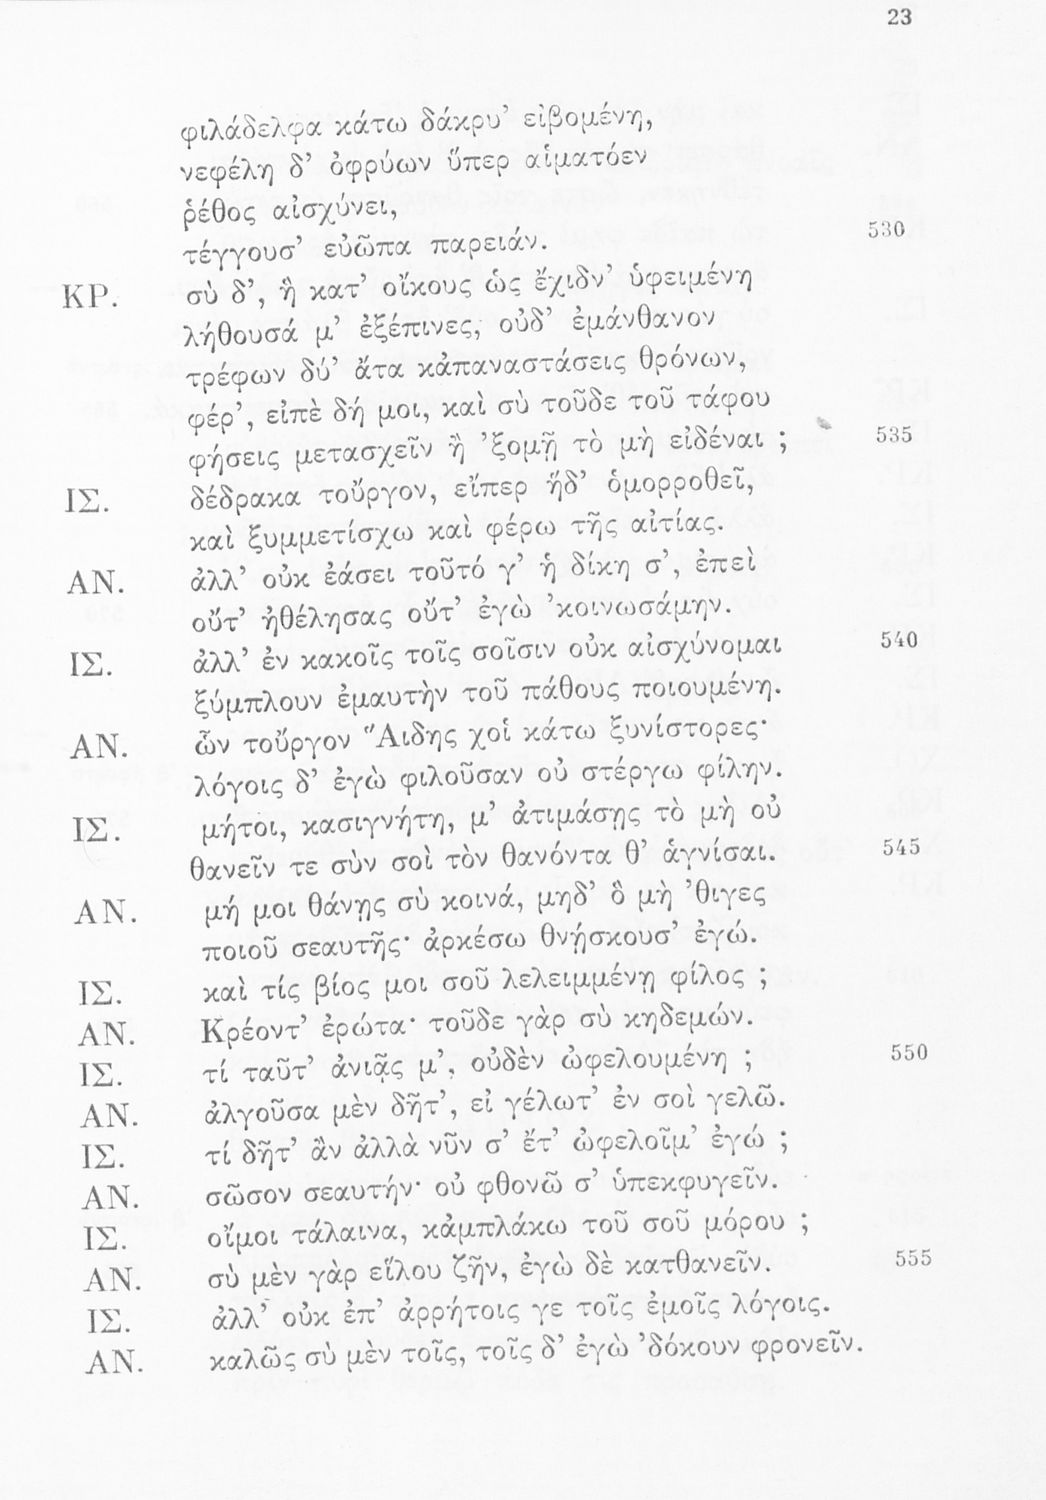 23
φιλάδελφα κάτω δάκρυ’ εἰβομένη,
νεφέλη δ’ ὀφρύων ὕπερ αἱματόεν
ῥέθος αἰσχύνει,
τέγγουσ’ εὐῶπα παρειάν. 530
ΚΡ. σὺ δ’, ἣ κατ’ οἴκους ὡς ἔχιδν’ ὑφειμένη
λήθουσά μ’ ἐξέπινες, οὐδ’ ἐμάνθανον
τρέφων δύ’ ἄτα κἀπαναστάσεις θρόνων,
φέρ’, εἰπὲ δή μοι, καὶ σὺ τοῦδε τοῦ τάφου
φήσεις μετασχεῖν ἢ ’ξομῇ τὸ μὴ εἰδέναι ; 535
ΙΣ. δέδρακα τοὔργον, εἴπερ ἥδ’ ὁμορροθεῖ,
καὶ ξυμμετίσχω καὶ φέρω τῆς αἰτίας.
ΑΝ. ἀλλ’ οὐκ ἐάσει τοῦτό γ’ ἡ δίκη σ’, ἐπεὶ
οὔτ’ ἠθέλησας οὔτ’ ἐγὼ ’κοινωσάμην.
ΙΣ. ἀλλ’ ἐν κακοῖς τοῖς σοῖσιν οὐκ αἰσχύνομαι 540
ξύμπλουν ἐμαυτὴν τοῦ πάθους ποιουμένη.
ΑΝ. ὧν τοὔργον Ἅιδης χοἱ κάτω ξυνίστορες·
λόγοις δ’ ἐγὼ φιλοῦσαν οὐ στέργω φίλην.
ΙΣ. μήτοι, κασιγνήτη, μ’ ἀτιμάσῃς τὸ μὴ οὐ
θανεῖν τε σὺν σοὶ τὸν θανόντα θ’ ἁγνίσαι. 545
ΑΝ. μή μοι θάνῃς σὺ κοινά, μηδ’ ὃ μὴ ’θιγες
ποιοῦ σεαυτῆς· ἀρκέσω θνῄσκουσ’ ἐγώ.
ΙΣ. καὶ τίς βίος μοι σοῦ λελειμμένῃ φίλος ;
ΑΝ. Κρέοντ’ ἐρώτα· τοῦδε γὰρ σὺ κηδεμών.
ΙΣ. τί ταῦτ’ ἀνιᾷς μ’, οὐδὲν ὠφελουμένη ; 550
ΑΝ. ἀλγοῦσα μὲν δῆτ’, εἰ γέλωτ’ ἐν σοὶ γελῶ.
ΙΣ. τί δῆτ’ ἂν ἀλλὰ νῦν σ’ ἔτ’ ὠφελοῖμ’ ἐγώ ;
ΑΝ. σῶσον σεαυτήν· οὐ φθονῶ σ’ ὑπεκφυγεῖν.
ΙΣ. οἴμοι τάλαινα, κἀμπλάκω τοῦ σοῦ μόρου ;
ΑΝ. σὺ μὲν γὰρ εἵλου ζῆν, ἐγὼ δὲ κατθανεῖν. 555
ΙΣ. ἀλλ’ οὐκ ἐπ’ ἀρρήτοις γε τοῖς ἐμοῖς λόγοις.
ΑΝ. καλῶς σὺ μὲν τοῖς, τοῖς δ’ ἐγὼ ’δόκουν φρονεῖν.